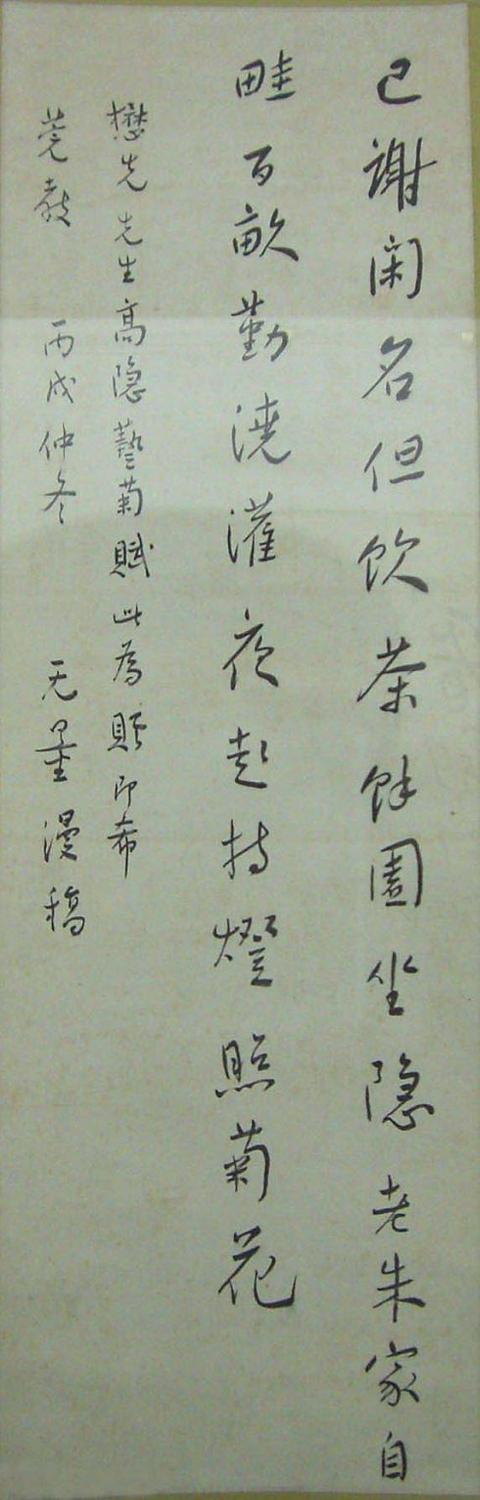 已谢闲名但饮茶餘園坐隐老朱家自
畦百畝勤澆灌夜起持燈照菊花
懋先先生高隐藝菊賦此為贈即希
莞教 丙戌仲冬 无量漫稿